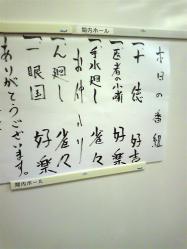 館内ホール
本日の番組
一 十徳 好吉
一 医者の小噺 好楽
一 手水廻し 雀々
お仲入り
一 ん廻し 雀々
一 一眼国 好楽
ありがとうございます。
館内ホール